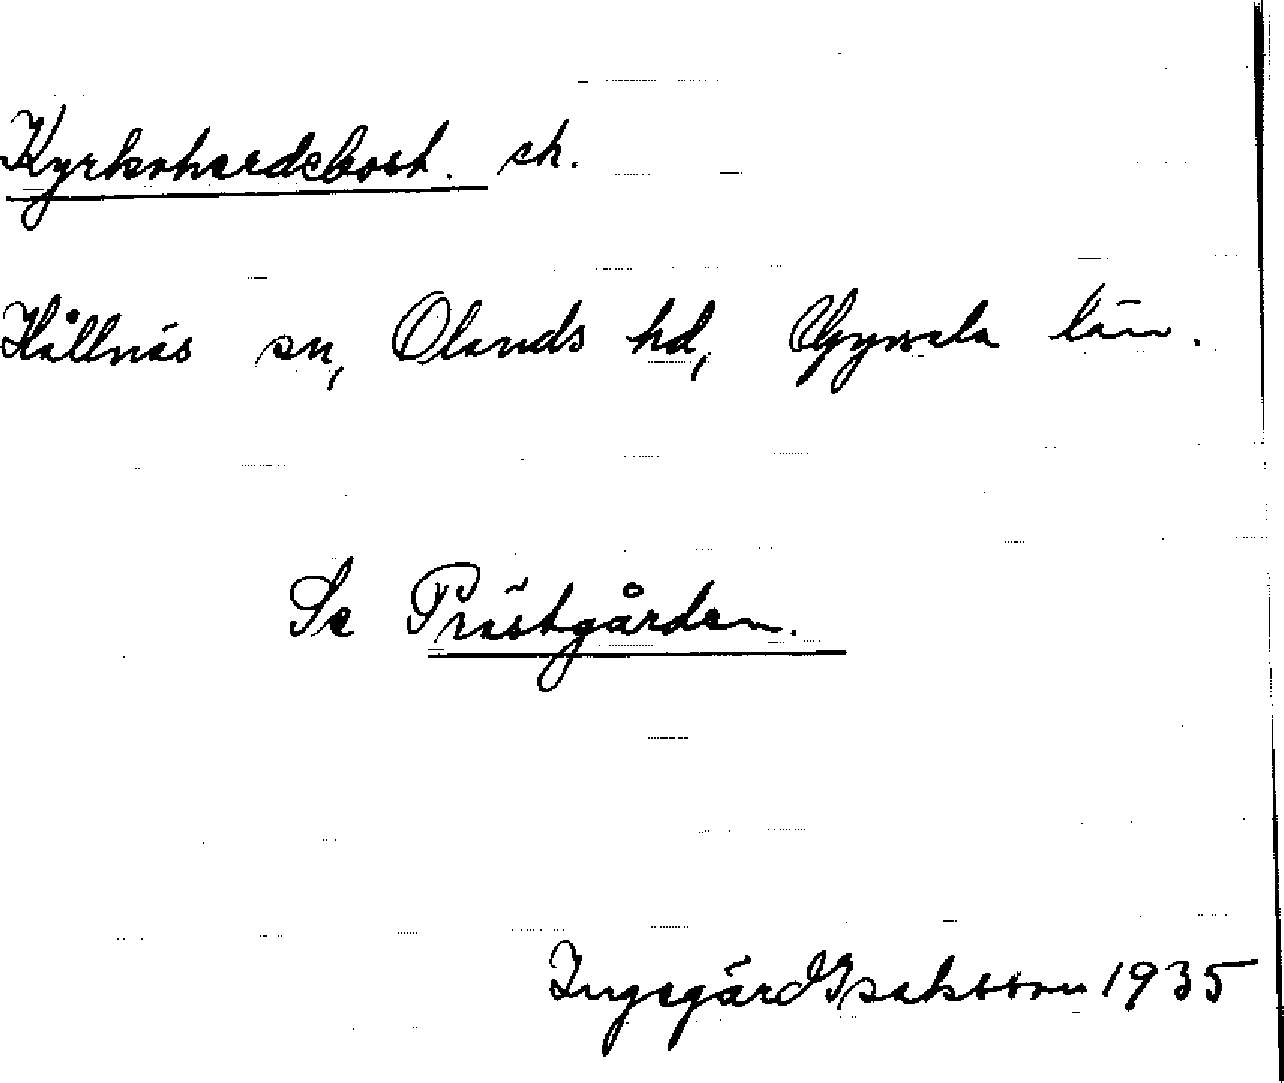 Kyrkoherdebost. ek.
Hållnäs sn, Olands hd, Uppsala län.
Se Prästgården.
Ingegärd Isaksson 1935